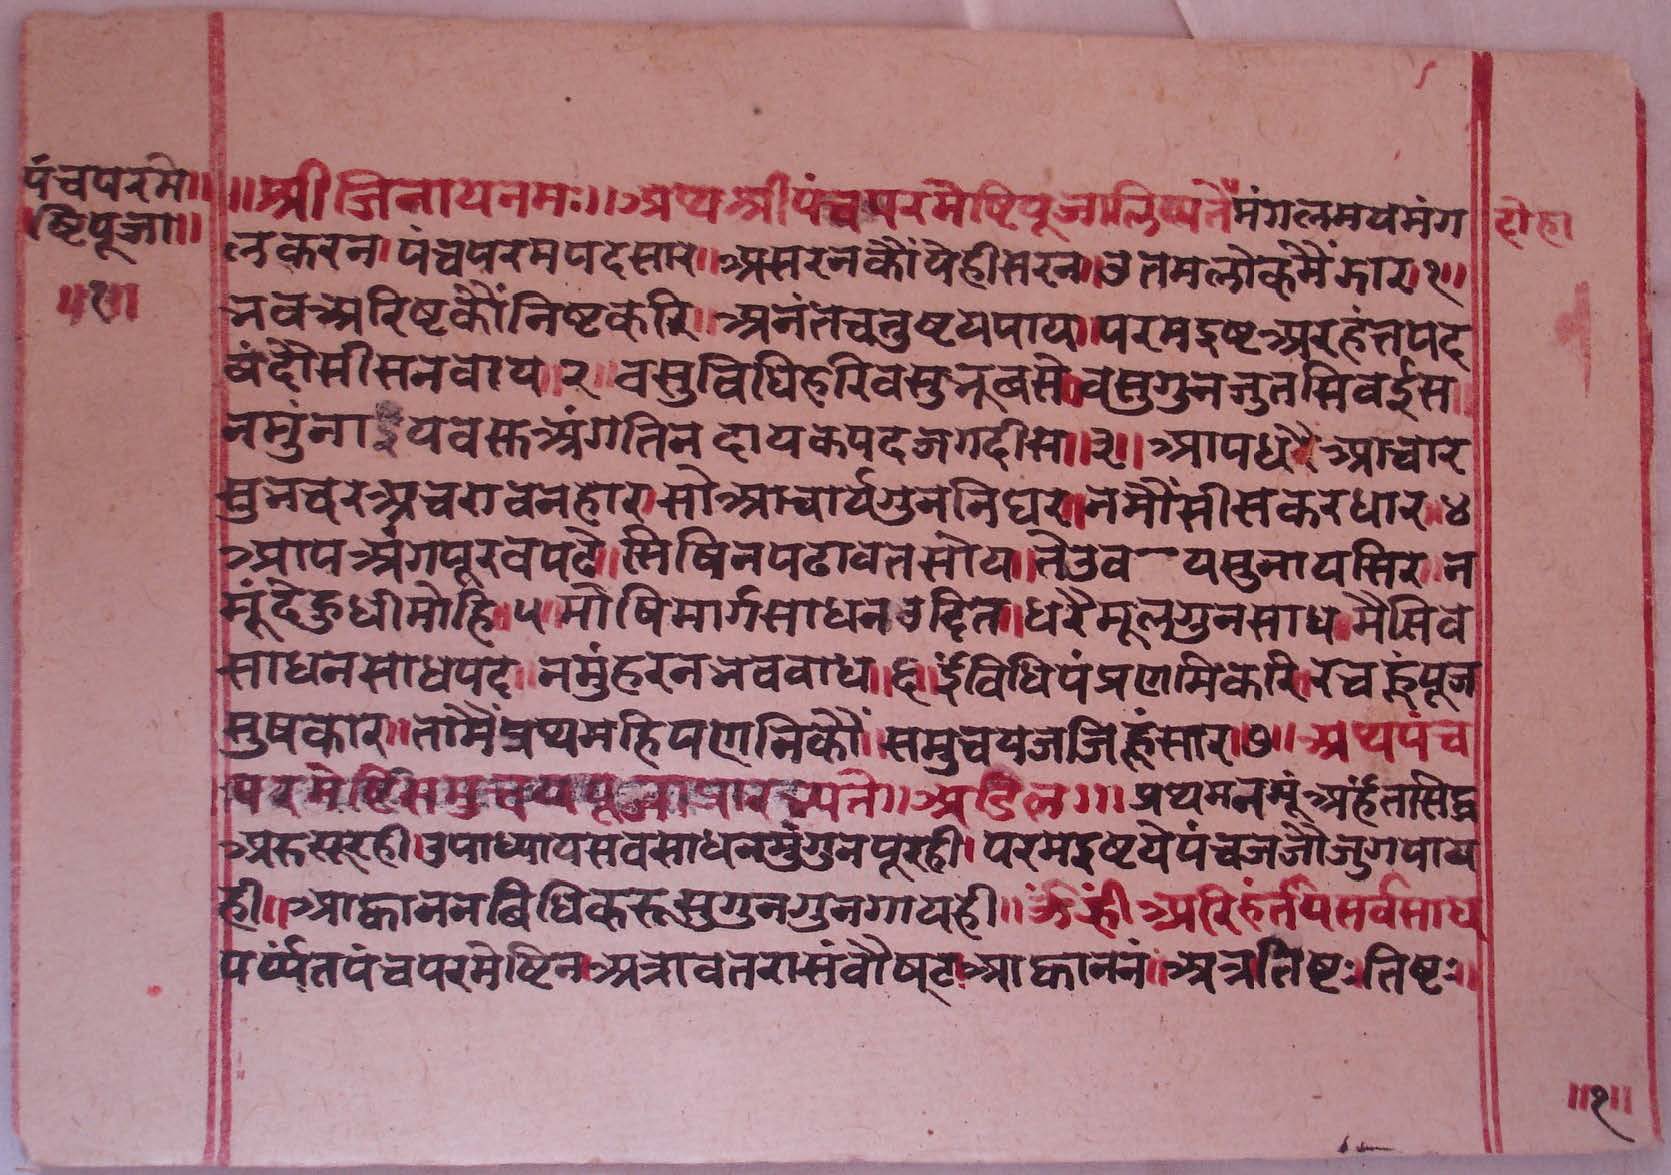 पंचपरमे॥
ष्टिपूजा॥
॥१॥
॥श्रीजिनायनमः॥अथश्रीपंचपरमेष्टिपूजालिष्यतें मंगलमयमंग
दोहा
लकरन।पंचपरमपदसार॥असरनकौंयेहीसरन॥उतमलोकमैंझार१॥
नवअरिष्टकौंनिष्टकरि॥अनंतचतुष्टयपाय॥परमइष्टअरहंतपद
बंदौसीसनवाय॥२॥वसुविधिहरिवसुभूबसे॥वसुगुनजुतसिवईस॥
नमुंना यवसुअंगतिन दायकपदजगदीस॥३॥आपधरैआचार
सुभचरअचरावनहार सोआचार्यगुननिघर॥नमौंसीसकरधार॥४
आपअंगपूरवपढै॥सिषिनपढावतसोय॥तेउव यसुनायसिर॥न
मूंदेहुधीमोहि॥५॥मोषिमार्गसाधनउदित॥धरैमूलगुनसाध॥मैसिव
साधनसाधपद॥नमुंहरनभवबाध॥६॥ईविधिपंचप्रणमिकरि॥रचहुंपूज
सुषकार॥तामैंप्रथमहि समुचयजजिहूंसार॥७॥अथपंच
परमेष्टिसमुचयपूजाप्रारभ्यते॥अडिल॥॥प्रथमनमूंअर्हंतसिद्ध
अरुसूरही।उपाध्यायसवसाधनमुंगुनपूरही।परमइष्टयेपंचजजौजुगपाय
ही॥आह्वाननबिधिकरूसुगुनगुनगायही॥ॐह्रीअरिहंत सर्वसाध
पर्य्यंतपंचपरमेष्टिनअत्रावतरासंवौषट्आह्वाननं॥अत्रतिष्टःतिष्टः॥
॥१॥